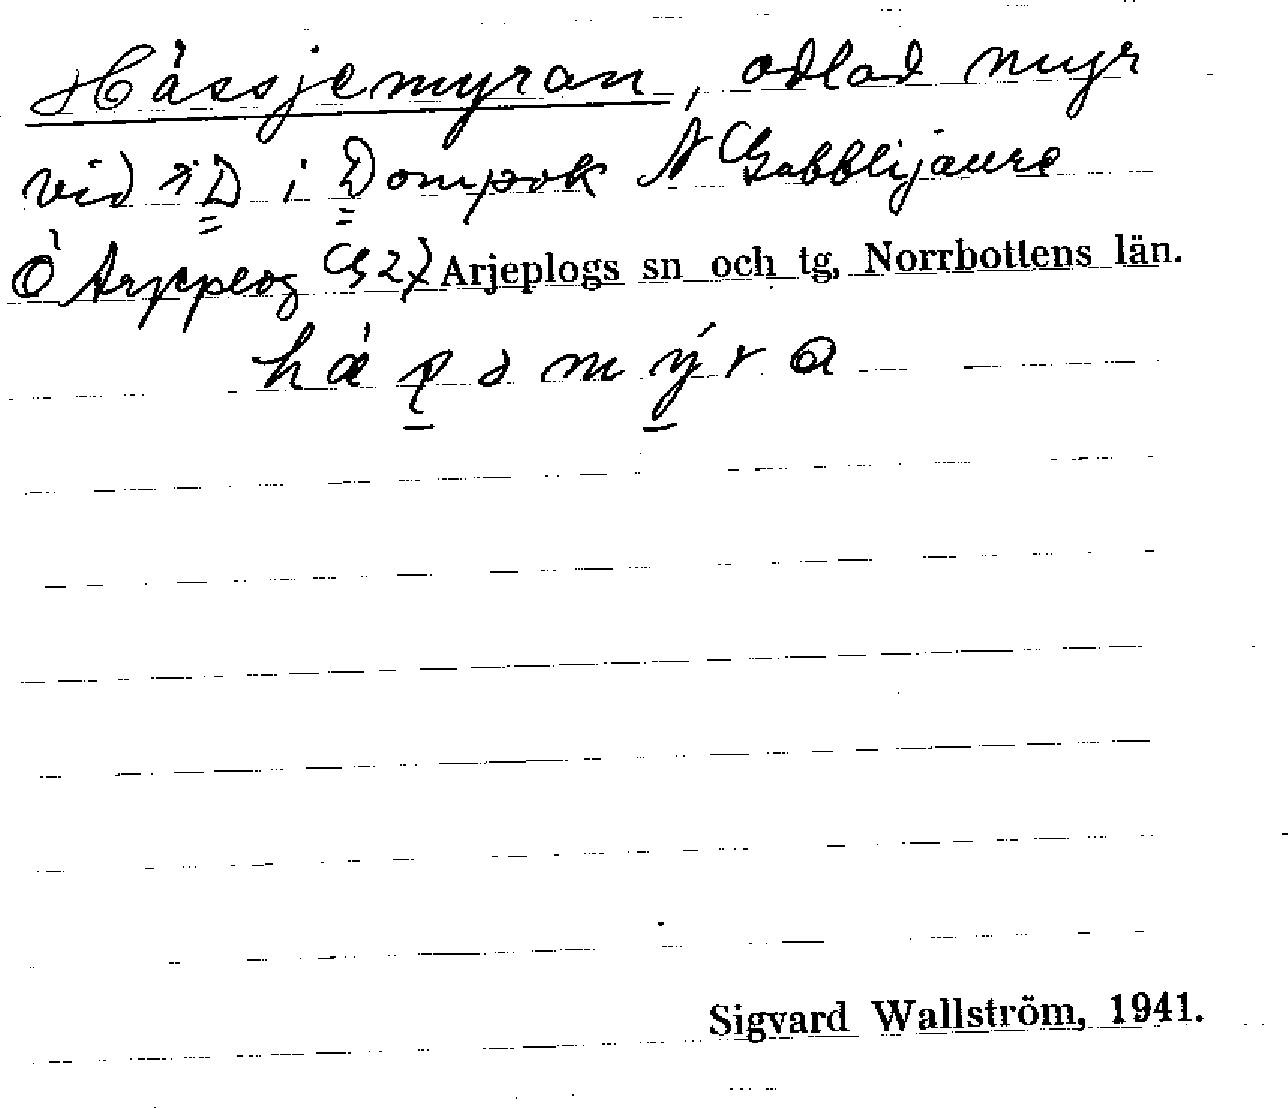 Hässjemyran, odlad myr
vid "D i Dompok N Gabblijaure
Ö Arjeplog G2) Arjeplogs sn och tg, Norrbottens län.
Sigvard Wallström, 1941.